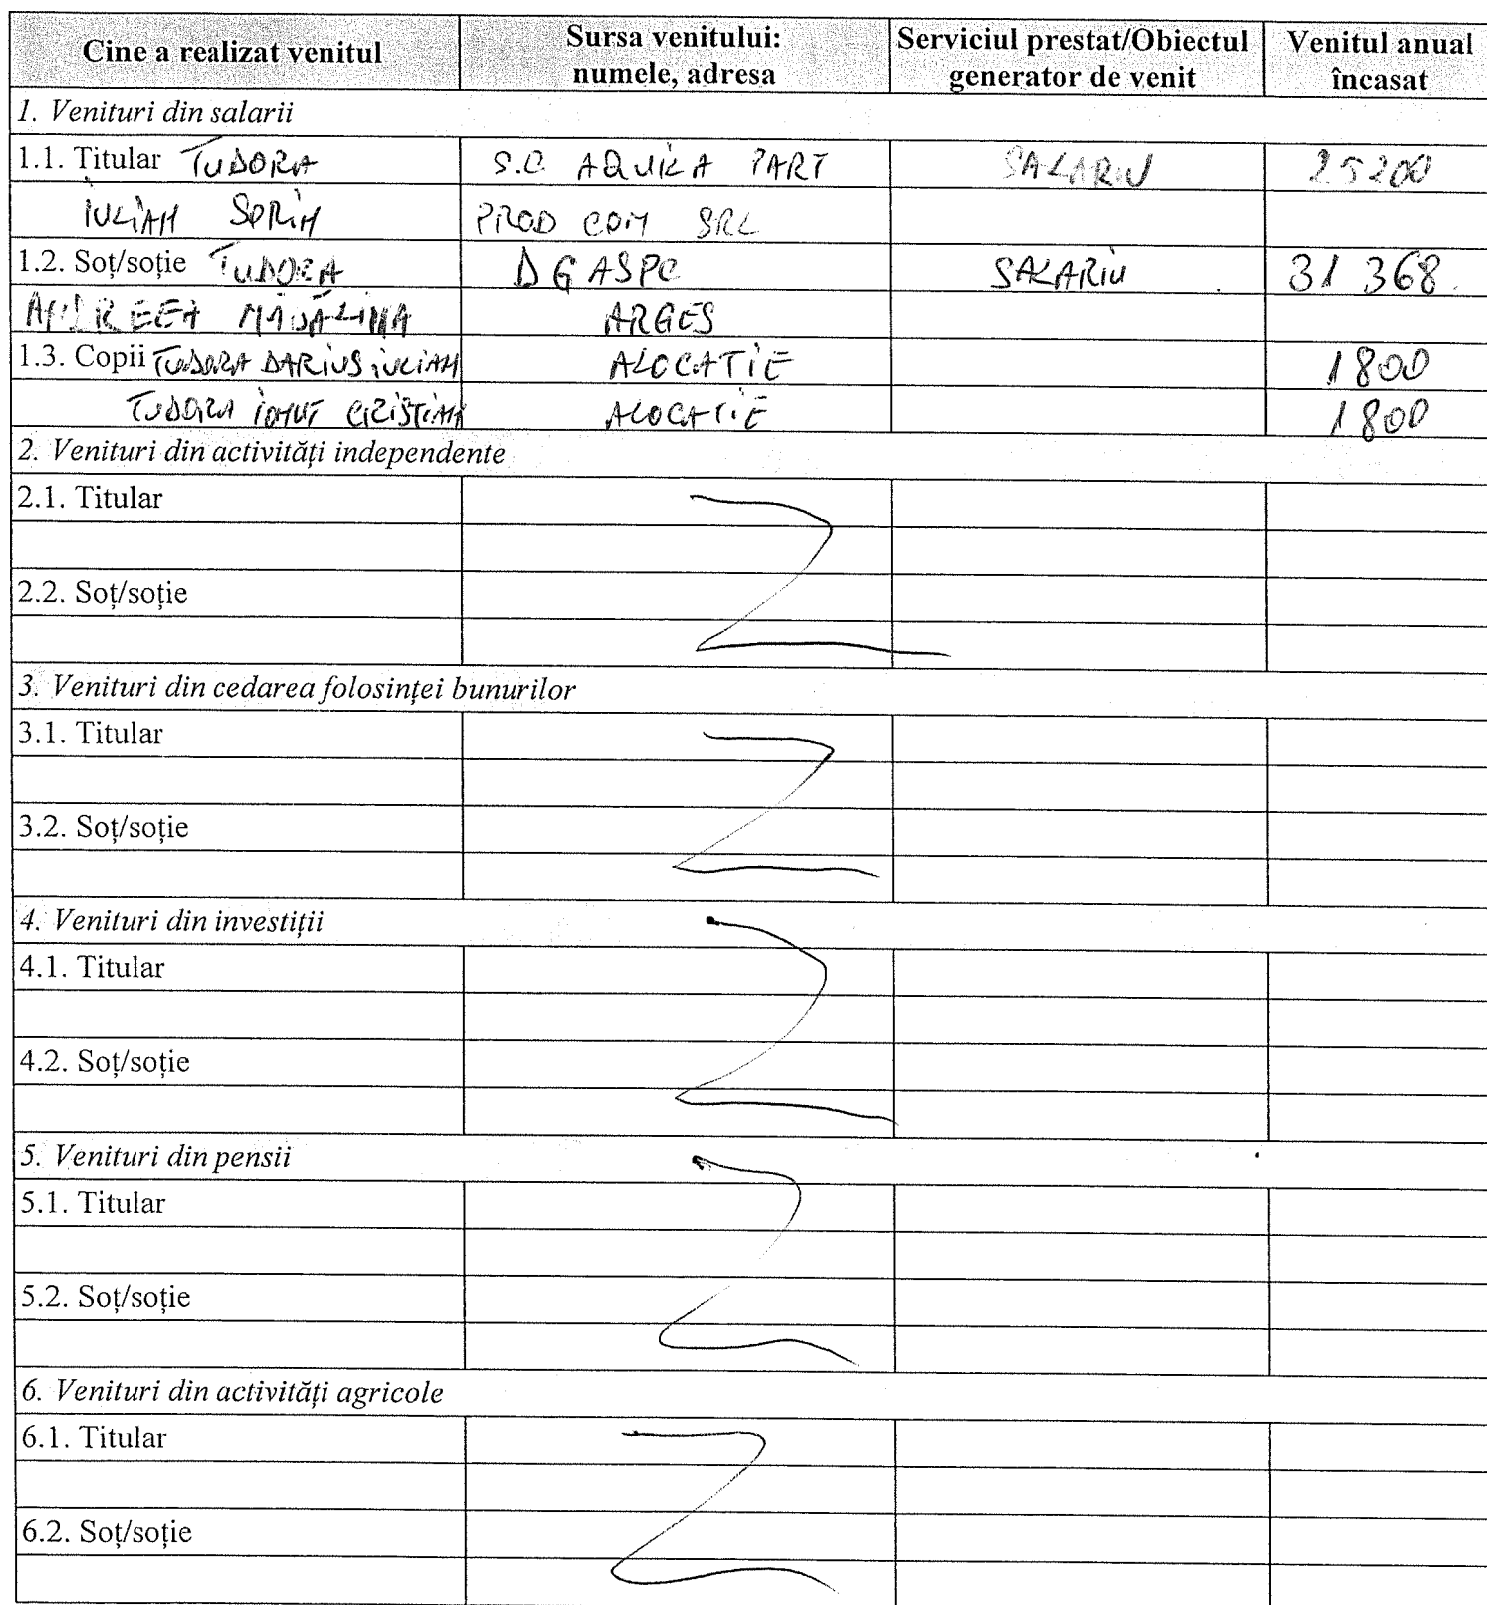 Cine a realizat venitul Sursa venitului: numele, adresa Serviciul prestat/Obiectul generator de venit Venitul anual încasat
1. Venituri din salarii
1.1. Titular TUDORA S.C. AQUILA PART SALARIU 25200
IULIAN SORIN PROD COM SRL
1.2. Soț/soție TUDORA DGASPC SALARIU 31 368
ANDREEA MĂDĂLINA ARGES
1.3. Copii TUDORA DARIUS IULIAN ALOCATIE 1800
TUDORA IONUT CRISTIAN ALOCATIE 1800
2. Venituri din activități independente
2.1. Titular
2.2. Soț/soție
3. Venituri din cedarea folosinței bunurilor
3.1. Titular
3.2. Soț/soție
4. Venituri din investiții
4.1. Titular
4.2. Soț/soție
5. Venituri din pensii
5.1. Titular
5.2. Soț/soție
6. Venituri din activități agricole
6.1. Titular
6.2. Soț/soție